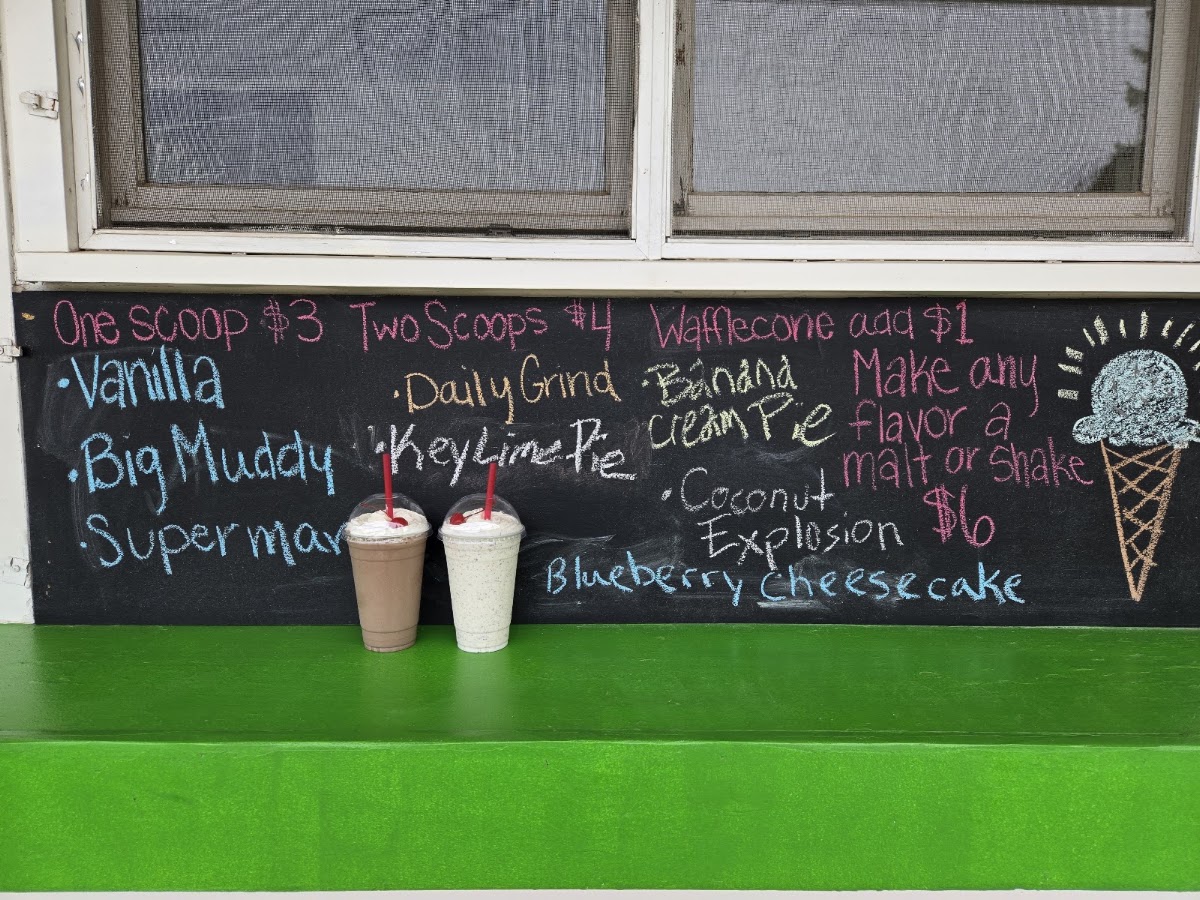 One scoop $3 Two Scoops $4 Wafflecone add $1
• Vanilla
• Big Muddy
• Superman
• Daily Grind
• Key Lime Pie
• Banana
Cream Pie
• Coconut
Explosion
Blueberry cheesecake
Make any
flavor a
malt or shake
$6